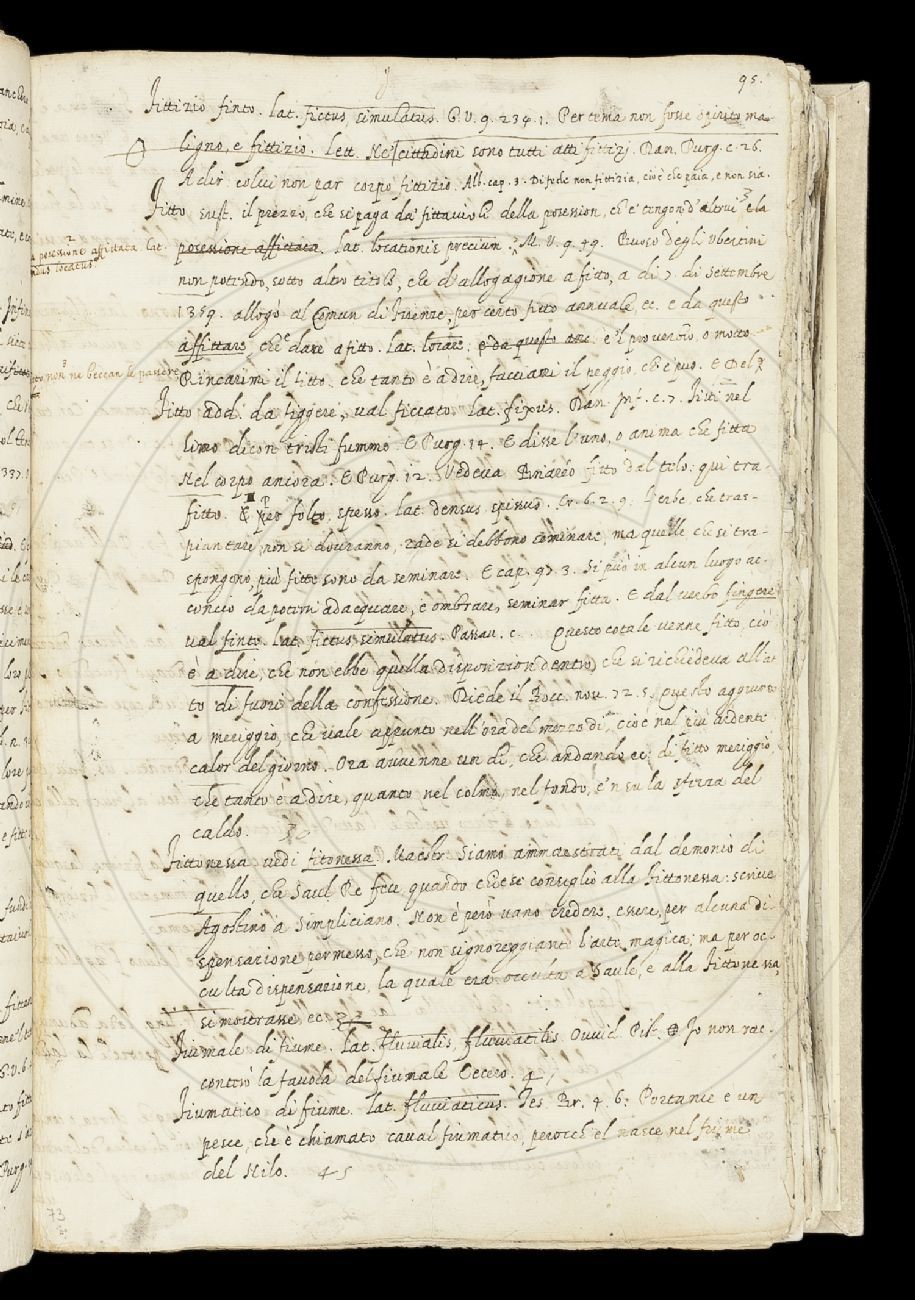 95.
Fittizio finto. lat. fictus, simulatus. G. V. 9. 234. 1. Per tema non fosse spirito ma-
ligno, e fittizio. lett. Ne cittadini sono tutti atti fittizj. Dan. Purg. c. 26.
A dir: colui non par corpo fittizio. Alb. cap. 3. Di fede non fittizia, cioè che paia, e non sia.
Fitto sust. il prezzo, che si paga da' fittaiuoli della posession, che e' tengon d'altrui e la
posessione affittata. lat. locationis precium. M. V. 9. 49. degli Ubertini
posessione affittata lat.
locatus
non potendo, sotto altro titolo, che d'allogagione a fitto, a dì 7. di Settembre
1359. allogò al Comun di Firenze, per certo fitto annuale, ec. e da questo
affittare che è dare a fitto. Lat. locare. e da questo e 'l proverbio, o motto
non ne beccan le passere
Rincarimi il fitto. che tanto è a dire, facciami il peggio, che può. E Del
Fitto add. da figgere, val ficcato. Lat. fixus. Dan. Inf. c. 7. Fitti nel
limo dicon tristi fummo. E Purg. 14. E disse l'uno, o anima che fitta
Nel corpo ancora. E Purg. 12. Vedeva Briareo fitto dal telo: qui tra-
fitto. E per folto, spesso. lat. densus, spissus. Cr. 6. 2. 9. l'erbe, che tras-
piantare, non si dovranno, rade si debbono seminare, ma quelle, che si tra-
spongono, più fitto sono da seminare. E cap. 97. 3. Si può in alcun luogo ac-
concio da potersi adacquare, e ombrare, seminar fitta. E dal verbo fingere
val finto. Lat. fictus simulatus. Passav. c. Questo cotale venne fitto, ciò
è a dire, che non ebbe quella disposizion dentro, che si richiedeva all'at
to di fuori della confessione. Riede il Bocc. nov. 72. 5. Questo aggiunto
a meriggio, che vale appunto nell'ora del mezzo dì, cioè nel più ardente
calor del giorno. Ora avvenne un dì, che andando ec: di fitto meriggio,
che tanto è a dire, quanto nel colmo, nel fondo, e 'n su la sferza del
caldo.
Fittonessa vedi fitonessa. Maestr. Siamo ammaestrati dal demonio di
quello, che Saul Re fece quando chiese consiglio alla fittonessa: scrive
Agostino a Simpliciano. Non è però vano credere, essere, per alcuna di-
spensazione permesso, che non signoreggiante l'arte magica; ma per oc-
culta dispensazione, la quale era occulta a Saule, e alla Fittonessa,
si mostrasse ec.
Fiumale di fiume. Lat. fluvialis, fluviatilis. Ovvid. Pist. Io non rac-
contrò la favola del fiumale Cecero. 4
Fiumatico di fiume. Lat. fluviaticus. Tes. Br. 4. 6: e un
pesce, che è chiamato caval fiumatico, perocch' el nasce nel fiume
del Nilo. 45
73